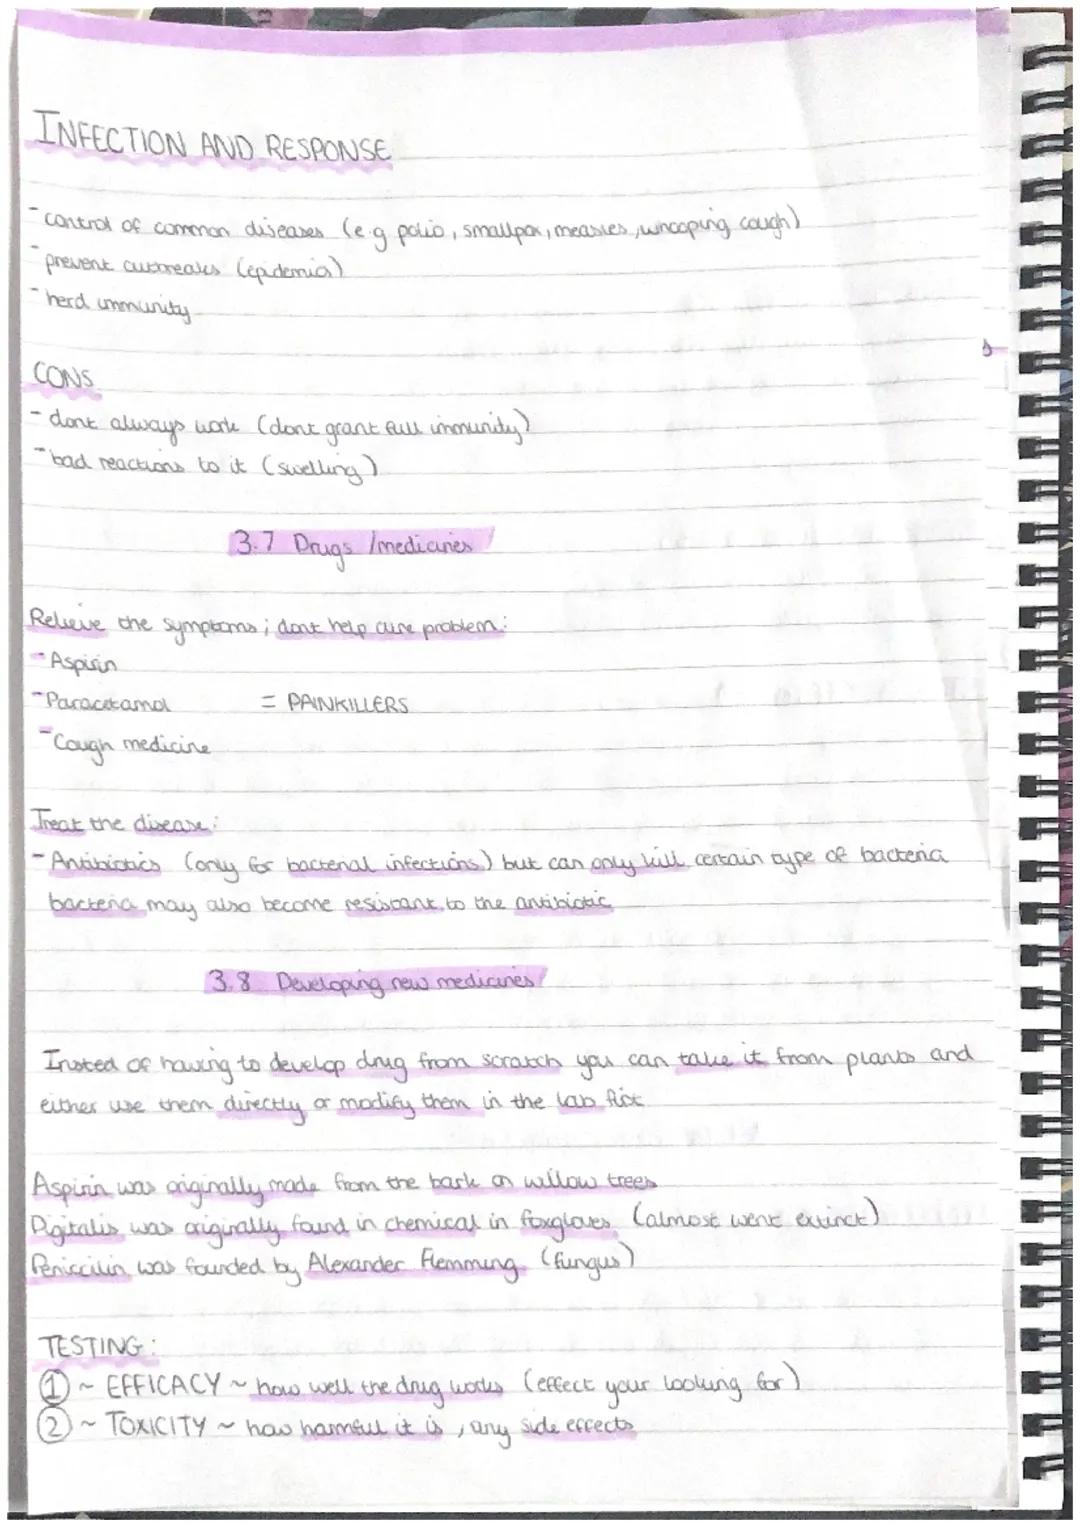 INFECTION AND RESPONSE
- control of common diseases (e.g polio, smallpox, measles, whooping cough)
- prevent outbreaks (epidemia)
- herd immunity
CONS
- dont always work (dont grant full immunity)
- bad reactions to it (swelling)
3.7 Drugs /medicines
Relieve the symptoms; dont help cure problem:
- Aspirin
- Paracetamol = PAINKILLERS
- Cough medicine
Treat the disease:
- Antibiotics (only for bacterial infections) but can only kill certain type of bacteria
bacteria may also become resistant to the antibiotic
3.8 Developing new medicines
Insted of having to develop drug from scratch you can take it from plants and
either use them directly or modify them in the lab first
Aspirin was originally made from the bark on willow trees
Digitalis was originally found in chemical in foxgloves (almost went extinct)
Peniccilin was founded by Alexander Flemming (fungus)
TESTING:
1 ~ EFFICACY ~ how well the drug works (effect your looking for)
2 ~ TOXICITY ~ how harmful it is, any side effects